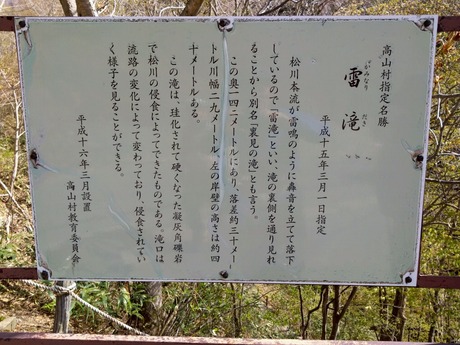 高山村指定名勝
雷滝
かみなりだき
平成十五年三月一日指定
松川本流が雷鳴のように轟音を立てて落下
しているので「雷滝」といい、滝の裏側を通り見れ
ることから別名「裏見の滝」とも言う。
この奥一四二メートルにあり、落差約三十メー
トル川幅二九メートル、左の岸壁の高さは約四
十メートルある。
この滝は、珪化されて硬くなった凝灰角礫岩
で松川の侵食によってできたものである。滝口は
流路の変化によって変わっており、侵食されてい
く様子を見ることができる。
平成十六年三月設置
高山村教育委員会